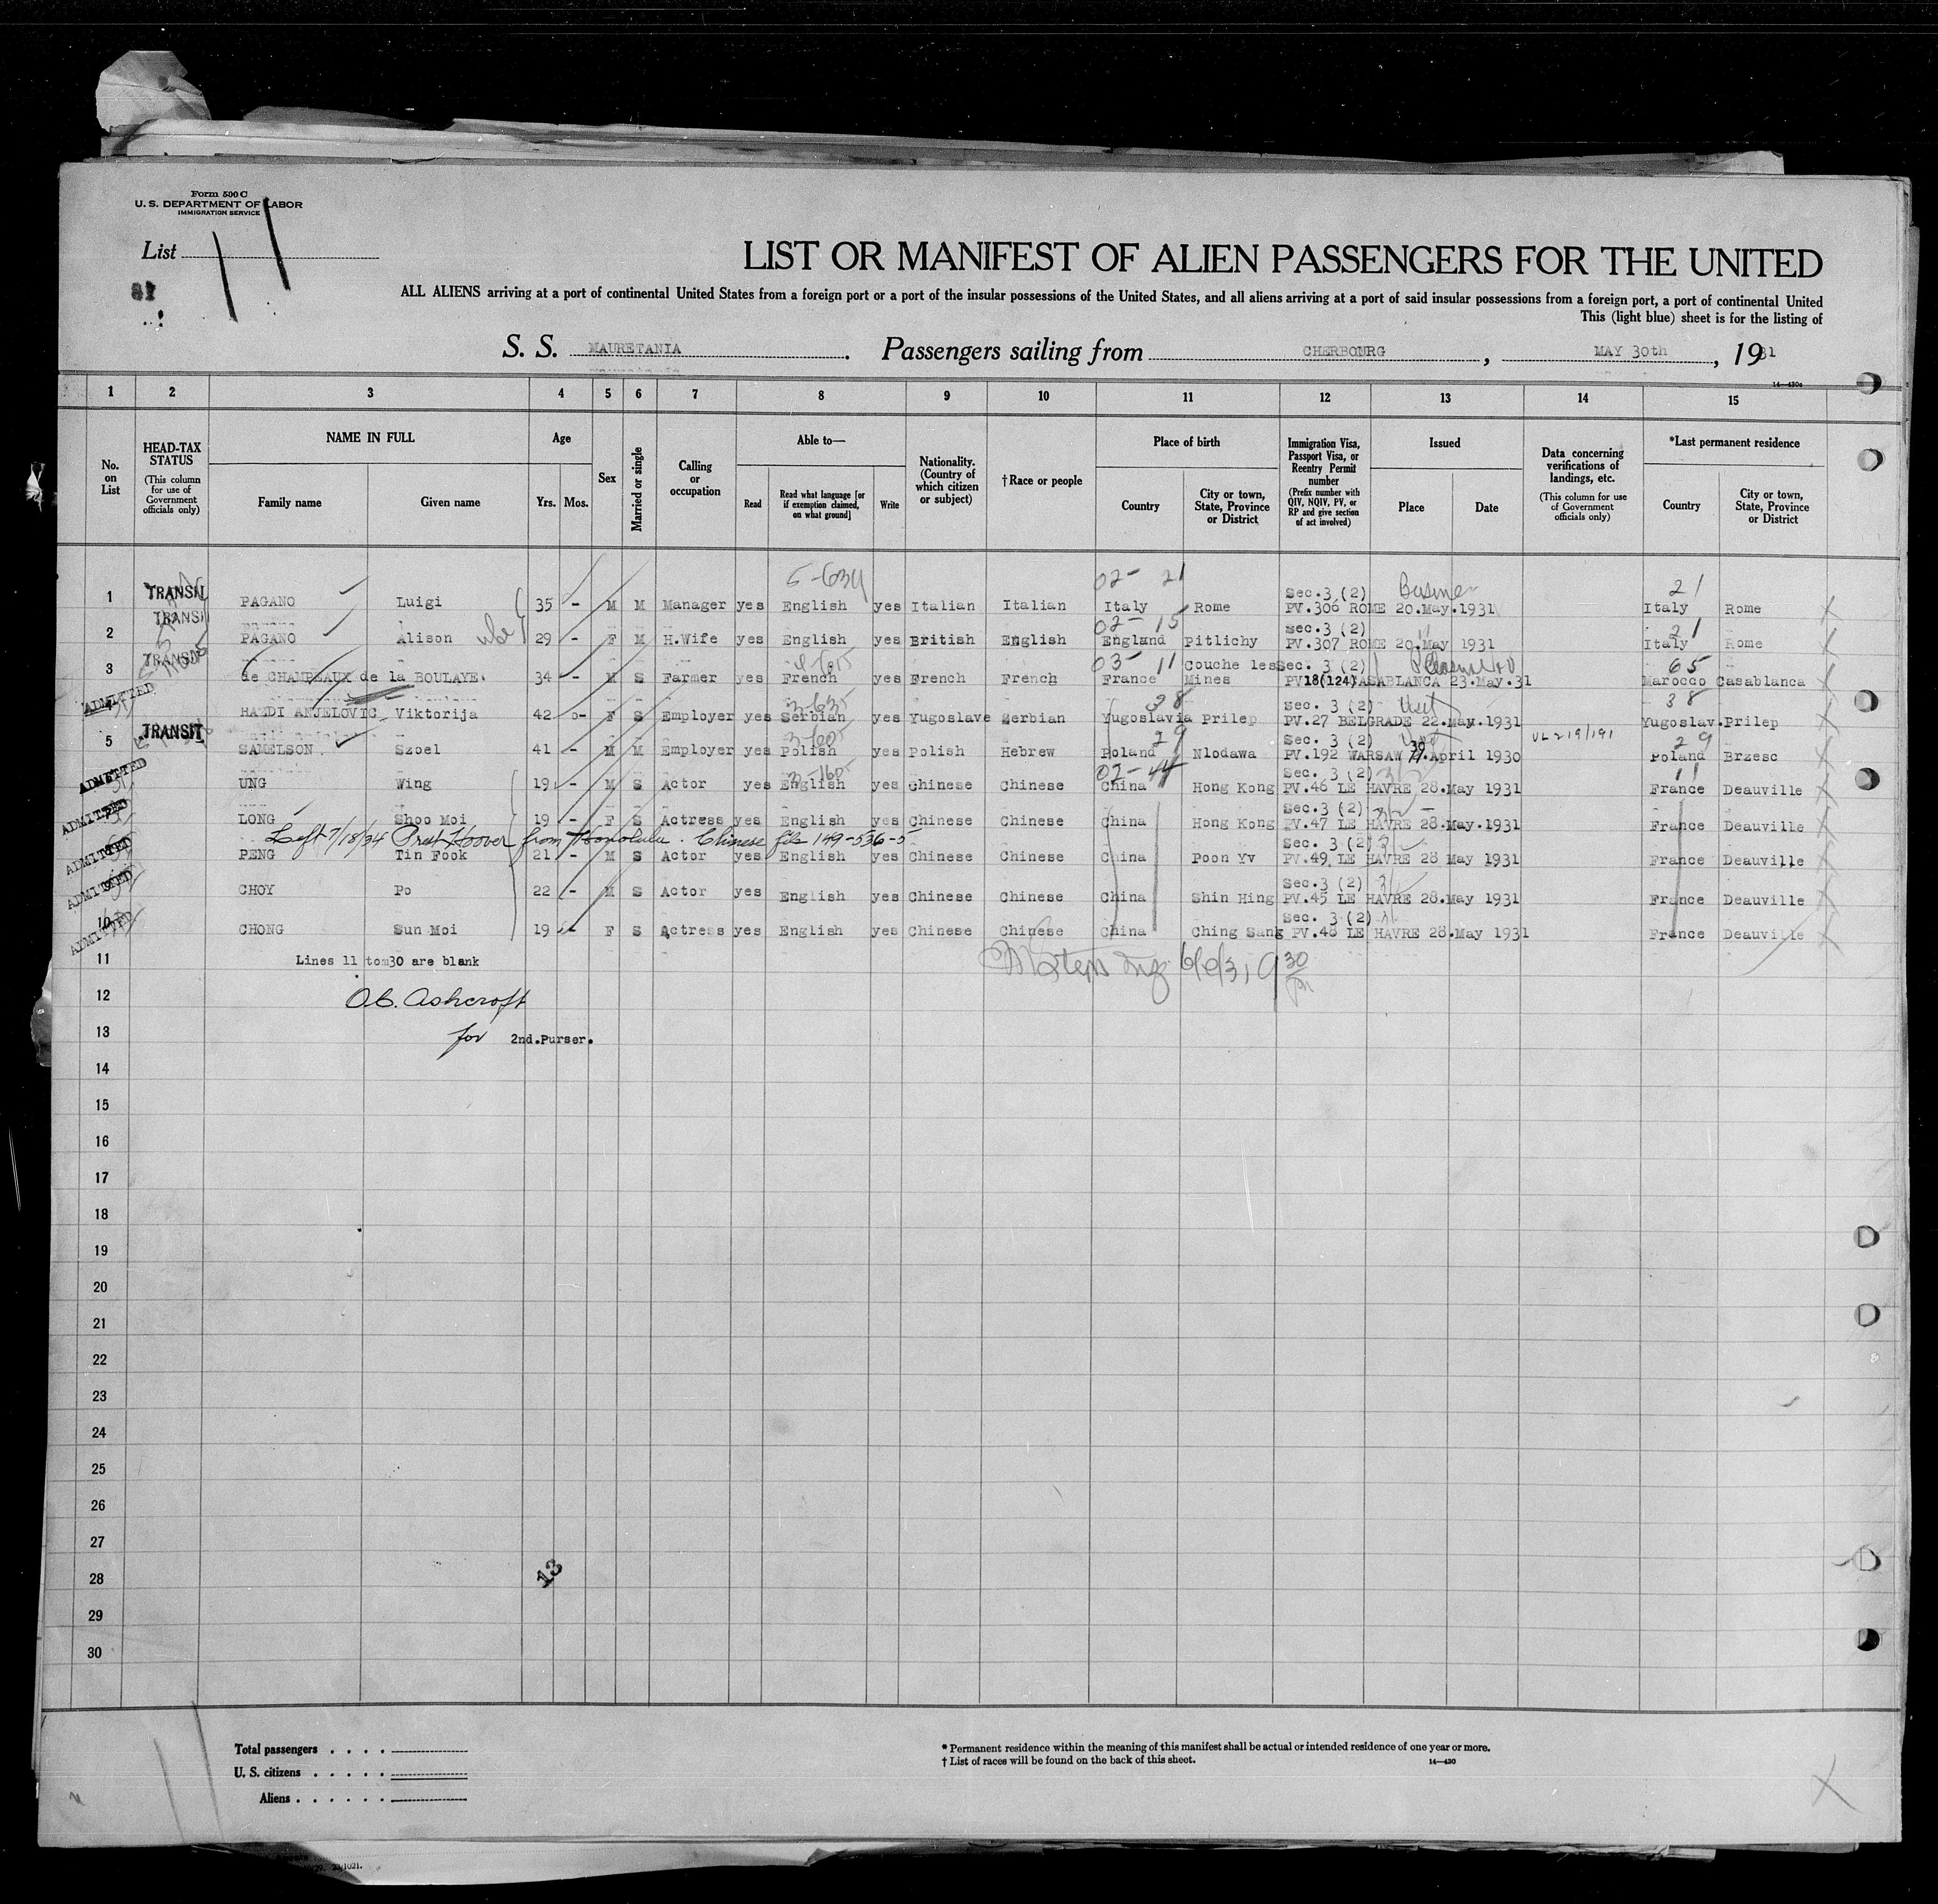 Form 500 C
U. S. DEPARTMENT OF LABOR
IMMIGRATION SERVICE
List
LIST OR MANIFEST OF ALIEN PASSENGERS FOR THE UNITED
ALL ALIENS arriving at a port of continental United States from a foreign port or a port of the insular possessions of the United States, and all aliens arriving at a port of said insular possessions from a foreign port, a port of continental United
This (light blue) sheet is for the listing of
S. S. MAURETANIA. Passengers sailing from CHERBOURG, MAY 30th, 1931
14—430a
1 2 3 4 5 6 7 8 9 10 11 12 13 14 15
No. on List
HEAD-TAX STATUS (This column for use of Government officials only)
NAME IN FULL
Family name Given name
Age
Yrs. Mos.
Sex
Married or single
Calling or occupation
Able to—
Read
Read what language [or if exemption claimed, on what ground]
Write
Nationality. (Country of which citizen or subject)
†Race or people
Place of birth
Country
City or town, State, Province or District
Immigration Visa, Passport Visa, or Reentry Permit number (Prefix number with QIV, NQIV, PV, or RP and give section of act involved)
Issued
Place Date
Data concerning verifications of landings, etc. (This column for use of Government officials only)
*Last permanent residence
Country
City or town, State, Province or District
5-634 02- 21 Sec.3 (2) 21
1 TRANSIT PAGANO Luigi 35 - M M Manager yes English yes Italian Italian Italy Rome PV.306 ROME 20.May.1931 Italy Rome
TRANSIT 02- 15 Sec.3 (2) 21
2 PAGANO Alison 29 - F M H.Wife yes English yes British English England Pitlichy PV.307 ROME 20.May 1931 Italy Rome
TRANSIT 03- 11 Couche les Sec. 3 (2) 65
3 de CHAMPEAUX de la BOULAYE. 34 - M S Farmer yes French yes French French France Mines PV18(124)CASABLANCA 23.May.31 Marocco Casablanca
ADMITTED 38 Sec. 3 (2) 38
HAZDI ANJELOVIC Viktorija 42 - F S Employer yes Serbian yes Yugoslave Serbian Yugoslavia Prilep PV.27 BELGRADE 22.May.1931 Yugoslav. Prilep
TRANSIT 29 Sec. 3 (2) VL 219/191 29
5 SAMELSON Szoel 41 - M M Employer yes Polish yes Polish Hebrew Poland Nlodawa PV.192 WARSAW 30 April 1930 Poland Brzesc
ADMITTED 02-44 Sec. 3 (2) 11
UNG Wing 19 - M S Actor yes English yes Chinese Chinese China Hong Kong PV.46 LE HAVRE 28.May 1931 France Deauville
ADMITTED Sec.3 (2)
LONG Shoo Moi 19 - F S Actress yes English yes Chinese Chinese China Hong Kong PV.47 LE HAVRE 28.May.1931 France Deauville
Left 7/18/34 Prest Hoover from Honolulu. Chinese file 149-536-5
ADMITTED Sec. 3 (2)
PENG Tin Fook 21 - M S Actor yes English yes Chinese Chinese China Poon Yv PV.49 LE HAVRE 28 May 1931 France Deauville
ADMITTED Sec.3 (2)
CHOY Po 22 - M S Actor yes English yes Chinese Chinese China Shin Hing PV.45 LE HAVRE 28.May 1931 France Deauville
10 ADMITTED Sec. 3 (2)
CHONG Sun Moi 19 - F S Actress yes English yes Chinese Chinese China Ching Sang PV.48 LE HAVRE 28.May 1931 France Deauville
11 Lines 11 tom30 are blank
12 O.C. Ashcroft
13 for 2nd.Purser.
14
15
16
17
18
19
20
21
22
23
24
25
26
27
28 13
29
30
Total passengers . . . .
U. S. citizens . . . . .
Aliens . . . . . .
* Permanent residence within the meaning of this manifest shall be actual or intended residence of one year or more.
† List of races will be found on the back of this sheet. 14—430